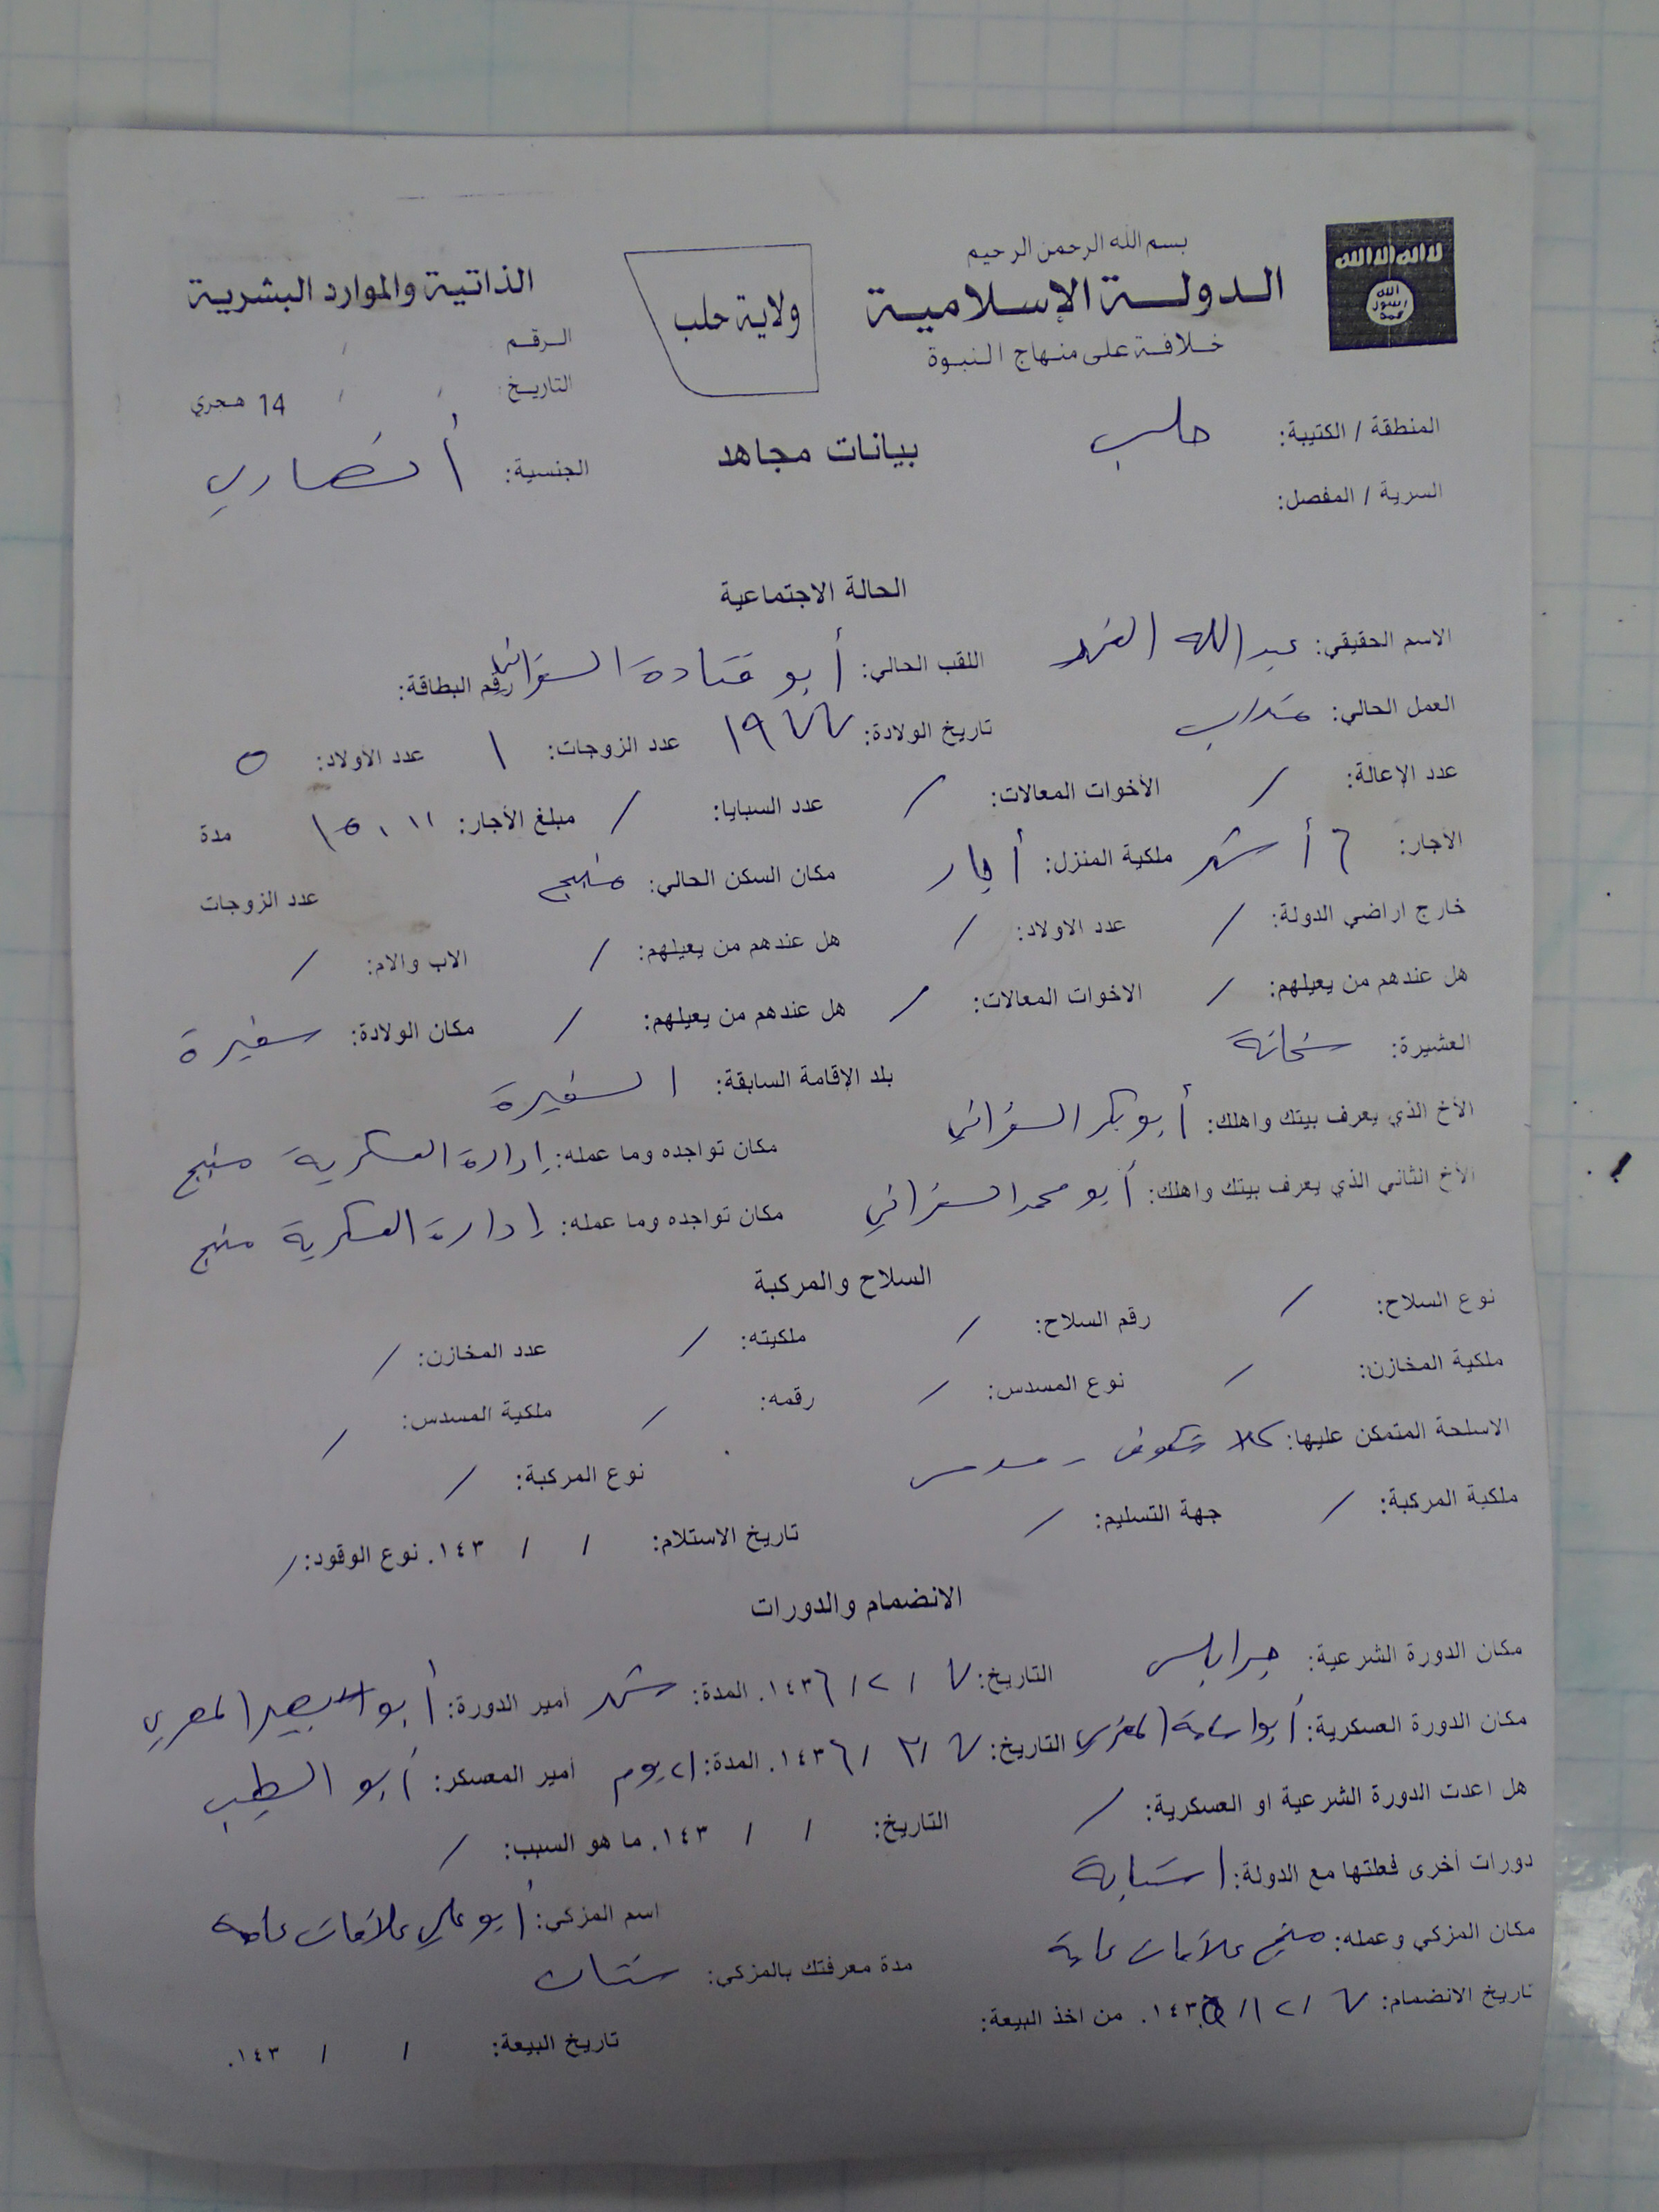 لا إله إلا الله
الله رسول محمد
بسم الله الرحمن الرحيم
الدولة الإسلامية
خلافة على منهاج النبوة
ولاية حلب
الذاتية والموارد البشرية
الرقم: /
التاريخ: / / 14 هجري
المنطقة / الكتيبة: حلب
بيانات مجاهد
الجنسية: أنصاري
السرية / المفصل:
الحالة الاجتماعية
الاسم الحقيقي: عبدالله اللقب الحالي: أبو قتادة السفراني رقم البطاقة:
العمل الحالي: تاريخ الولادة: ١٩٧٧ عدد الزوجات: ١ عدد الأولاد: ٥
عدد الإعالة: / الأخوات المعالات: / عدد السبايا: / مبلغ الأجار: مدة
الأجار: ٦ أشهر ملكية المنزل: أجار مكان السكن الحالي: منبج عدد الزوجات
خارج اراضي الدولة: / عدد الاولاد: / هل عندهم من يعيلهم: / الاب والام: /
هل عندهم من يعيلهم: / الاخوات المعالات: / هل عندهم من يعيلهم: / مكان الولادة: سفيرة
العشيرة: بلد الإقامة السابقة: السفيرة
الأخ الذي يعرف بيتك واهلك: أبو بكر السفراني مكان تواجده وما عمله: إدارة العسكرية منبج
الأخ الثاني الذي يعرف بيتك واهلك: أبو محمد السفراني مكان تواجده وما عمله: إدارة العسكرية منبج
السلاح والمركبة
نوع السلاح: / رقم السلاح: / ملكيته: / عدد المخازن: /
ملكية المخازن: / نوع المسدس: / رقمه: / ملكية المسدس: /
الاسلحة المتمكن عليها: كلاشنكوف - مسدس نوع المركبة: /
ملكية المركبة: / جهة التسليم: / تاريخ الاستلام: / / ١٤٣. نوع الوقود: /
الانضمام والدورات
مكان الدورة الشرعية: جرابلس التاريخ: ٧ / ٢ / ١٤٣٦. المدة: شهر أمير الدورة: أبو البصير المصري
مكان الدورة العسكرية: أبو اسامة المغربي التاريخ: ٧ / ٣ / ١٤٣٦. المدة: يوم أمير المعسكر: أبو الطيب
هل اعدت الدورة الشرعية او العسكرية: / التاريخ: / / ١٤٣. ما هو السبب: /
دورات أخرى فعلتها مع الدولة: استتابة اسم المزكي: أبو علي علاقات عامة
مكان المزكي وعمله: منبج علاقات عامة مدة معرفتك بالمزكي: سنتان
تاريخ الانضمام: ٧ / ١٢ / ١٤٣٥. من اخذ البيعة: تاريخ البيعة: / / ١٤٣.